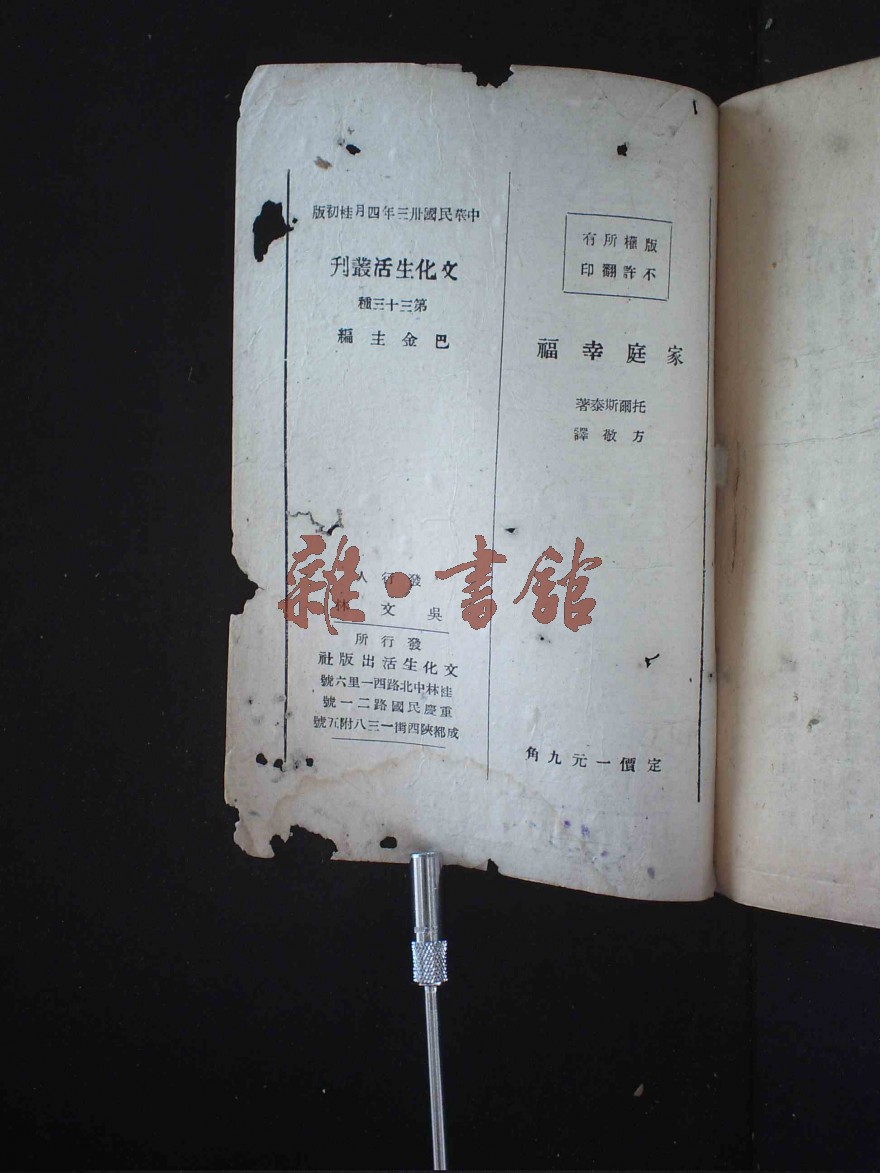 版權所有
不許翻印
家庭幸福
托爾斯泰著
方敬譯
定價一元九角
中華民國卅三年四月桂初版
文化生活叢刊
第三十三種
巴金主編
發行人
吳文林
發行所
文化生活出版社
桂林中北路西一里六號
重慶民國路二一號
成都陝西街一三八附五號
雜·書館